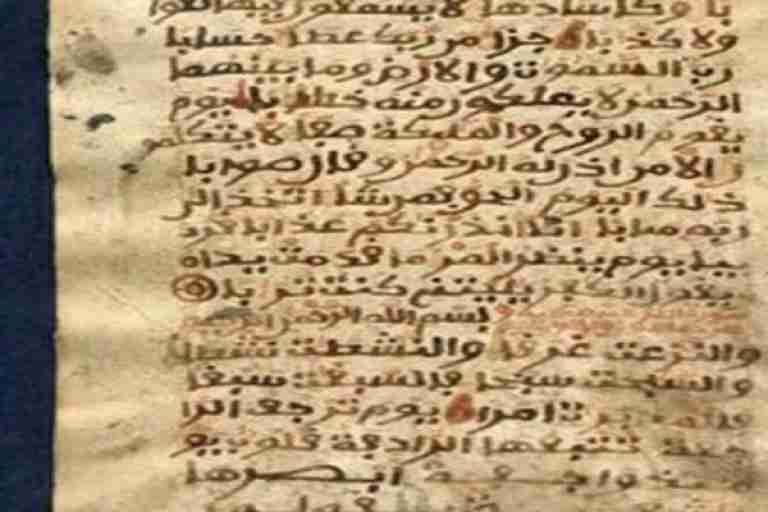 با وكاسا دهقا لا يسمعون فيها لغوا
ولا كذبا جزا من ربك عطا حسابا
رب السموت والارض وما بينهما
الرحمن لا يملكون منه خطابا يوم
يقوم الروح والمليكة صفا لا يتكلمو
ن الا من اذن له الرحمن وقال صوابا
ذلك اليوم الحق فمن شا اتخذ الى
ربه مابا انا انذرنكم عذابا قر
يبا يوم ينظر المر ما قدمت يداه
ويقول الكفر يليتني كنت تربا
بسم الله الرحمن الرحيم
والنزعت غرقا والنشطت نشطا
والسبحت سبحا فالسبقت سبقا
فالمدبرت امرا يوم ترجف الرا
جفة تتبعها الرادفة قلوب يو
مئذ واجفة ابصرها